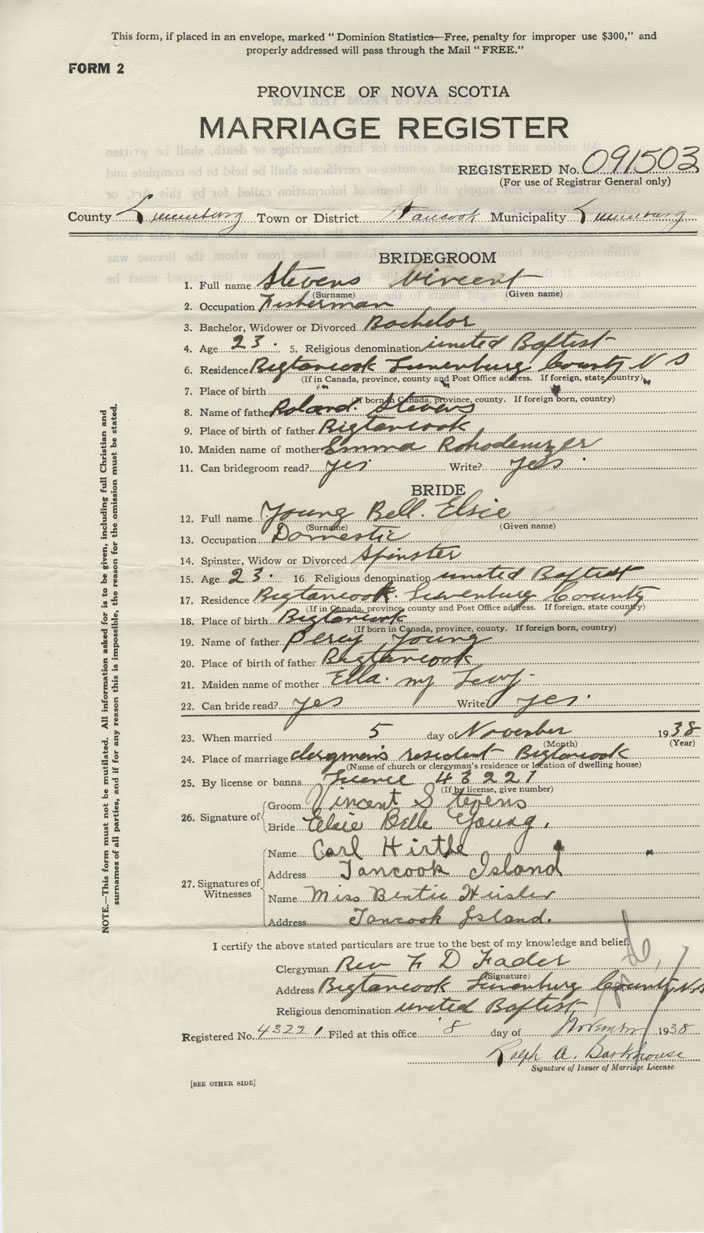 This form, if placed in an envelope, marked "Dominion Statistics—Free, penalty for improper use $300," and
properly addressed will pass through the Mail "FREE."
FORM 2
PROVINCE OF NOVA SCOTIA
MARRIAGE REGISTER
REGISTERED No. 091503
(For use of Registrar General only)
County Lunenburg Town or District Tancook Municipality Lunenburg
BRIDEGROOM
1. Full name Stevens Vincent
(Surname) (Given name)
2. Occupation Fisherman
3. Bachelor, Widower or Divorced Bachelor
4. Age 23. 5. Religious denomination united Baptist
6. Residence Bigtancook Lunenburg County N S
(If in Canada, province, county and Post Office address. If foreign, state country)
7. Place of birth " " " "
(If born in Canada, province, county. If foreign born, country)
8. Name of father Roland. Stevens
9. Place of birth of father Bigtancook
10. Maiden name of mother Emma Rohodenizer
11. Can bridegroom read? yes Write? yes.
BRIDE
12. Full name Young Bell. Elsie
(Surname) (Given name)
13. Occupation Domestic
14. Spinster, Widow or Divorced Spinster
15. Age 23. 16. Religious denomination united Baptist
17. Residence Bigtancook. Lunenburg County
(If in Canada, province, county and Post Office address. If foreign, state country)
18. Place of birth Bigtancook
(If born in Canada, province, county. If foreign born, country)
19. Name of father Percy Young
20. Place of birth of father Bigtancook
21. Maiden name of mother Ella. my Levy.
22. Can bride read? yes Write? yes.
23. When married 5 day of November 1938
(Month) (Year)
24. Place of marriage clergmen's resident Bigtancook
(Name of church or clergyman's residence or location of dwelling house)
25. By license or banns 43221
(If by license, give number)
26. Signature of Groom Vincent Stevens
Bride Elsie Belle Young.
27. Signatures of Witnesses
Name Carl Hirtle
Address Tancook Island
Name Miss Bertie Heisler
Address Tancook Island.
I certify the above stated particulars are true to the best of my knowledge and belief.
Clergyman Rev F D Fader
(Signature)
Address Bigtancook Lunenburg County N S
Religious denomination united Baptist
Registered No. 43221 Filed at this office 8 day of November 1938
Ralph A. Barkhouse
Signature of Issuer of Marriage License.
[SEE OTHER SIDE]
NOTE.—This form must not be mutilated. All information asked for is to be given, including full Christian and
surnames of all parties, and if for any reason this is impossible, the reason for the omission must be stated.